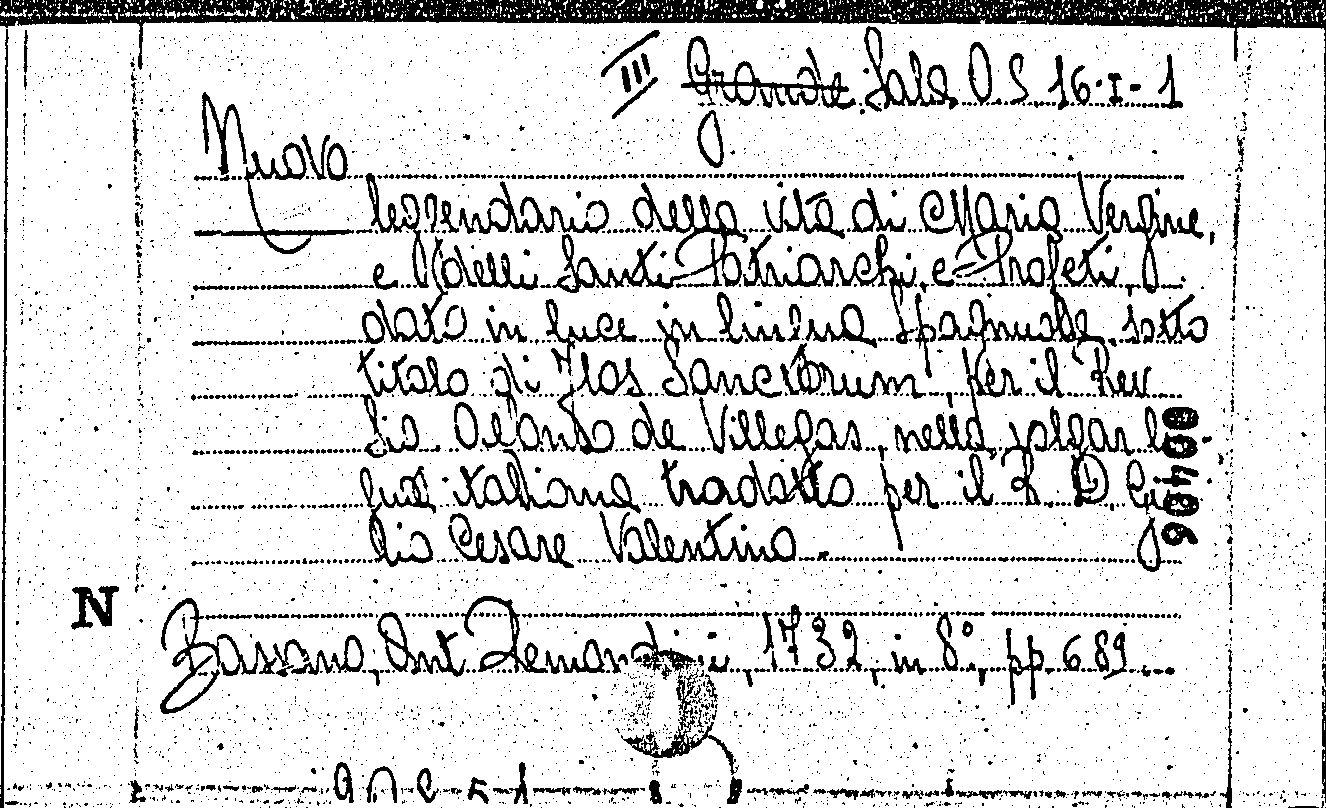 III Grande Sala O.S 16.I-1
Nuovo
leggendario della vita di Maria Vergine,
e delli Santi Patriarchi, e Profeti,
dato in luce in lingua Spagnuola sotto
titolo di Flos Sanctorum per il Rev
Alfonso de Villegas, nella volgar li
gua italiana tradotto per il R. D. Giu
lio Cesare Valentino.
004996
N
Bassano, Ant Remondini, 1732, in 8°, pp. 689...